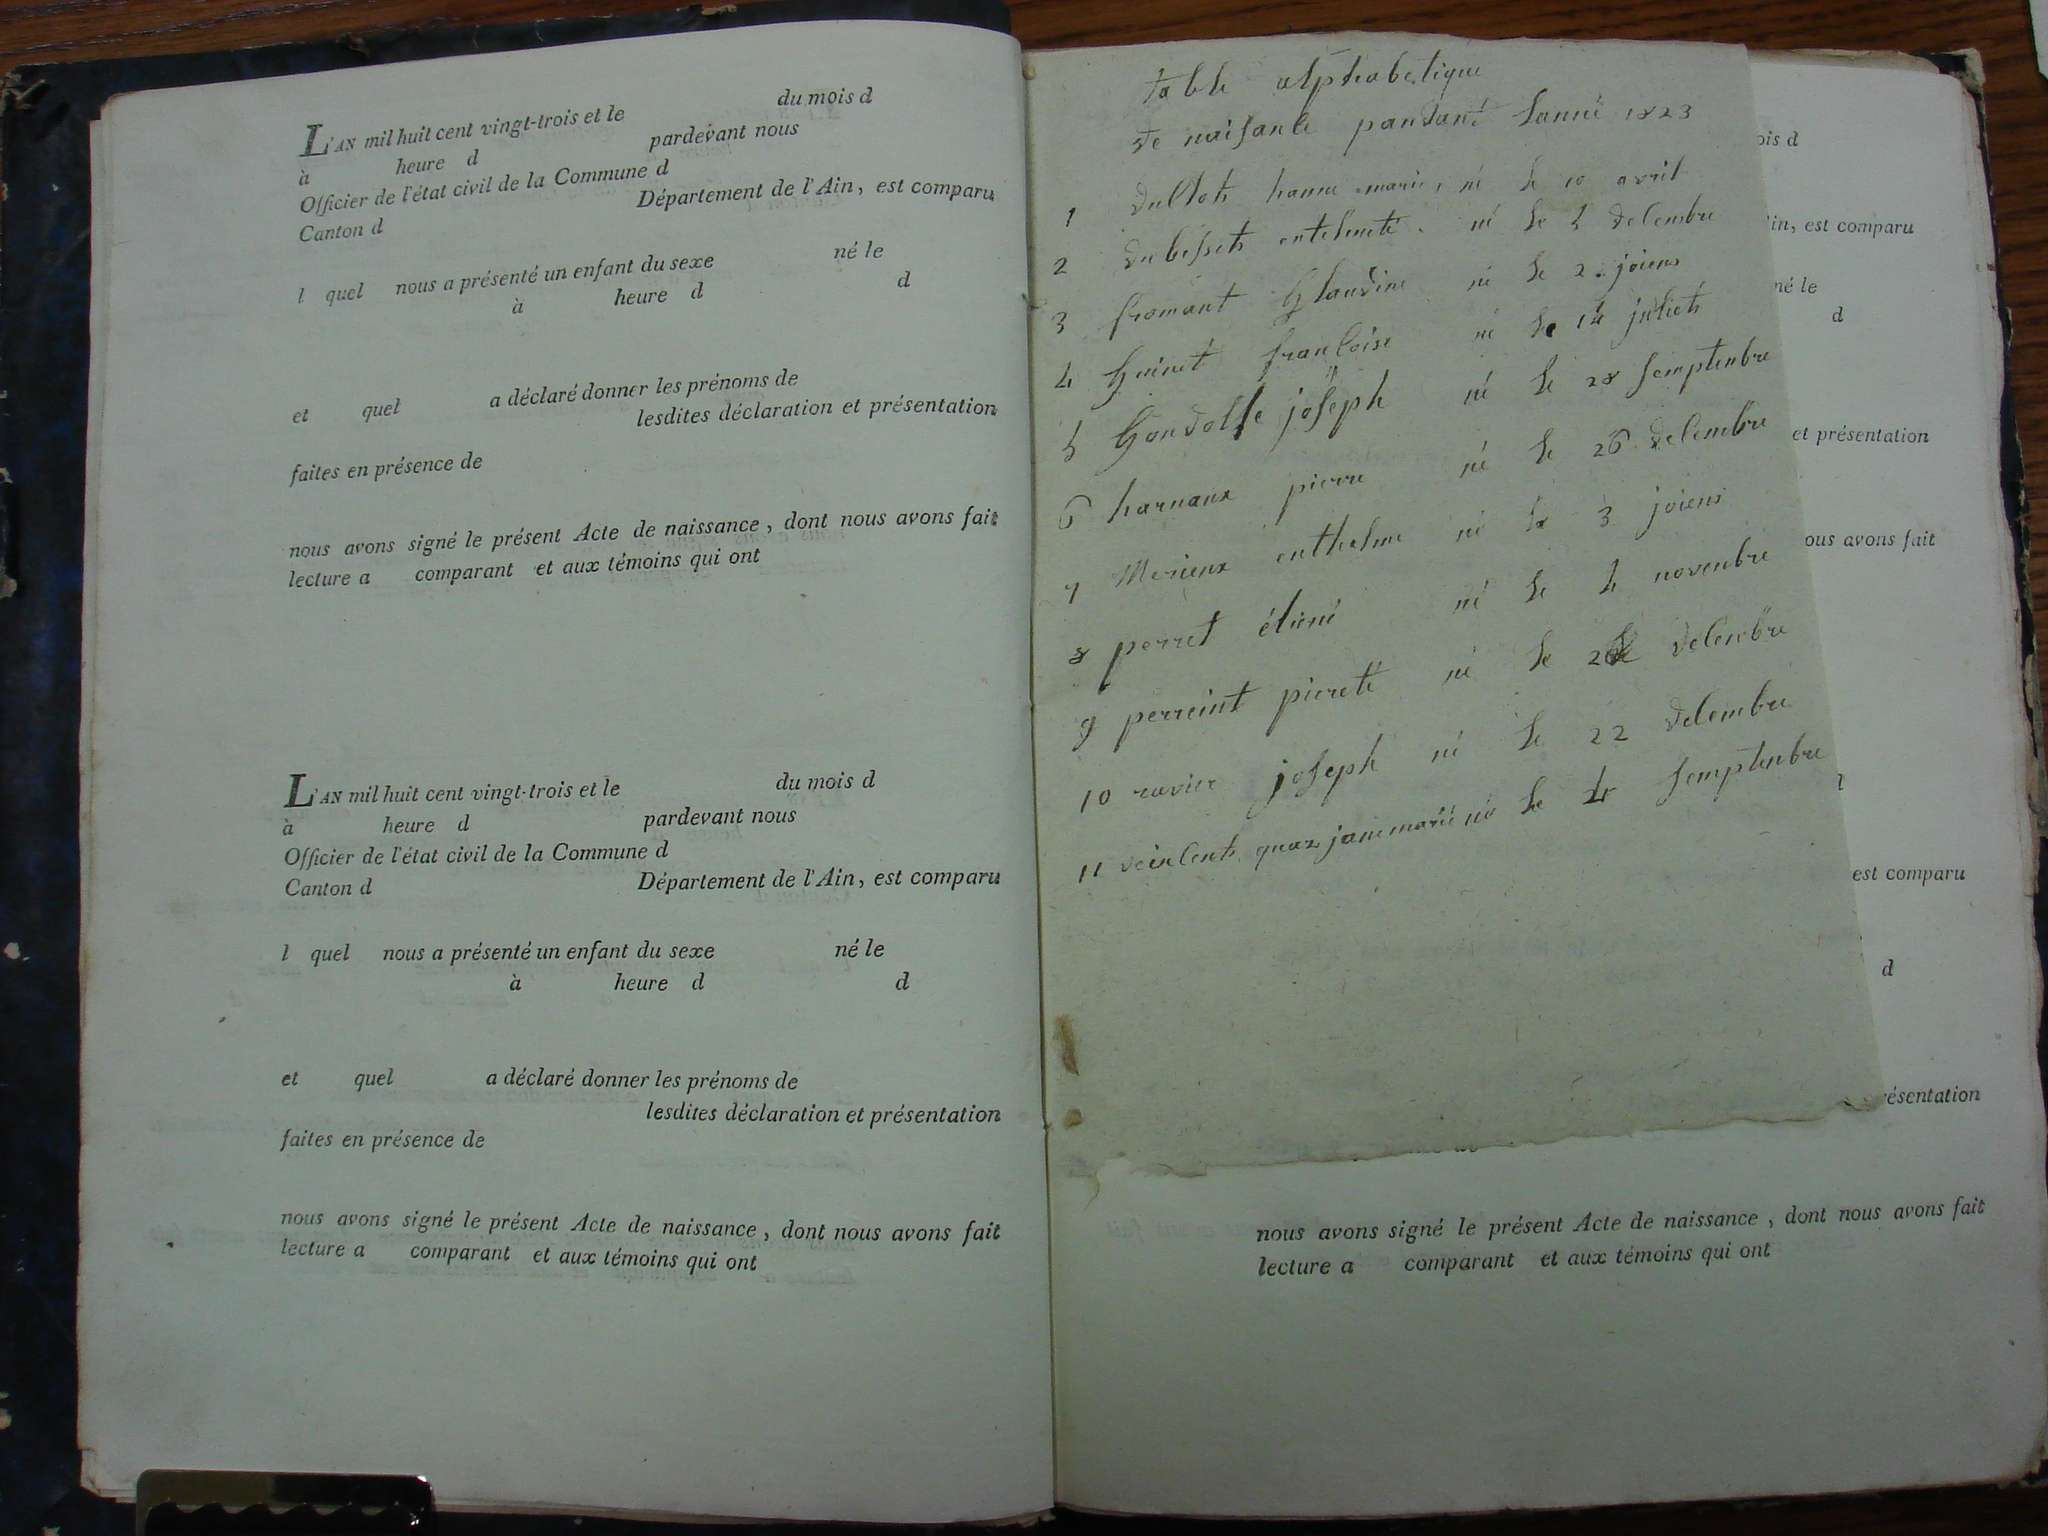 L'AN mil huit cent vingt-trois et le du mois d
à heure d pardevant nous
Officier de l'état civil de la Commune d
Canton d Département de l'Ain, est comparu
l quel nous a présenté un enfant du sexe né le
à heure d d
et quel a déclaré donner les prénoms de
lesdites déclaration et présentation
faites en présence de
nous avons signé le présent Acte de naissance, dont nous avons fait
lecture a comparant et aux témoins qui ont
L'AN mil huit cent vingt-trois et le du mois d
à heure d pardevant nous
Officier de l'état civil de la Commune d
Canton d Département de l'Ain, est comparu
l quel nous a présenté un enfant du sexe né le
à heure d d
et quel a déclaré donner les prénoms de
lesdites déclaration et présentation
faites en présence de
nous avons signé le présent Acte de naissance, dont nous avons fait
lecture a comparant et aux témoins qui ont
table alphabetique
de naisance pandant lanné 1823
1 marie né le 10 avril
2 né le 5 decembre
3 fromant Glaudine né le 2
4 francoise né le 14
5 joseph né le 28 semptenbre
6 harnaux pierre né le 26 decembre
7 Merieux né le 3
8 perret étiené né le 4 novenbre
9 perreint pierete né le decenbre
10 ravier joseph né le 22 decembre
11 né le semptenbre
ois d
in, est comparu
né le
d
et présentation
ous avons fait
est comparu
d
résentation
nous avons signé le présent Acte de naissance, dont nous avons fait
lecture a comparant et aux témoins qui ont